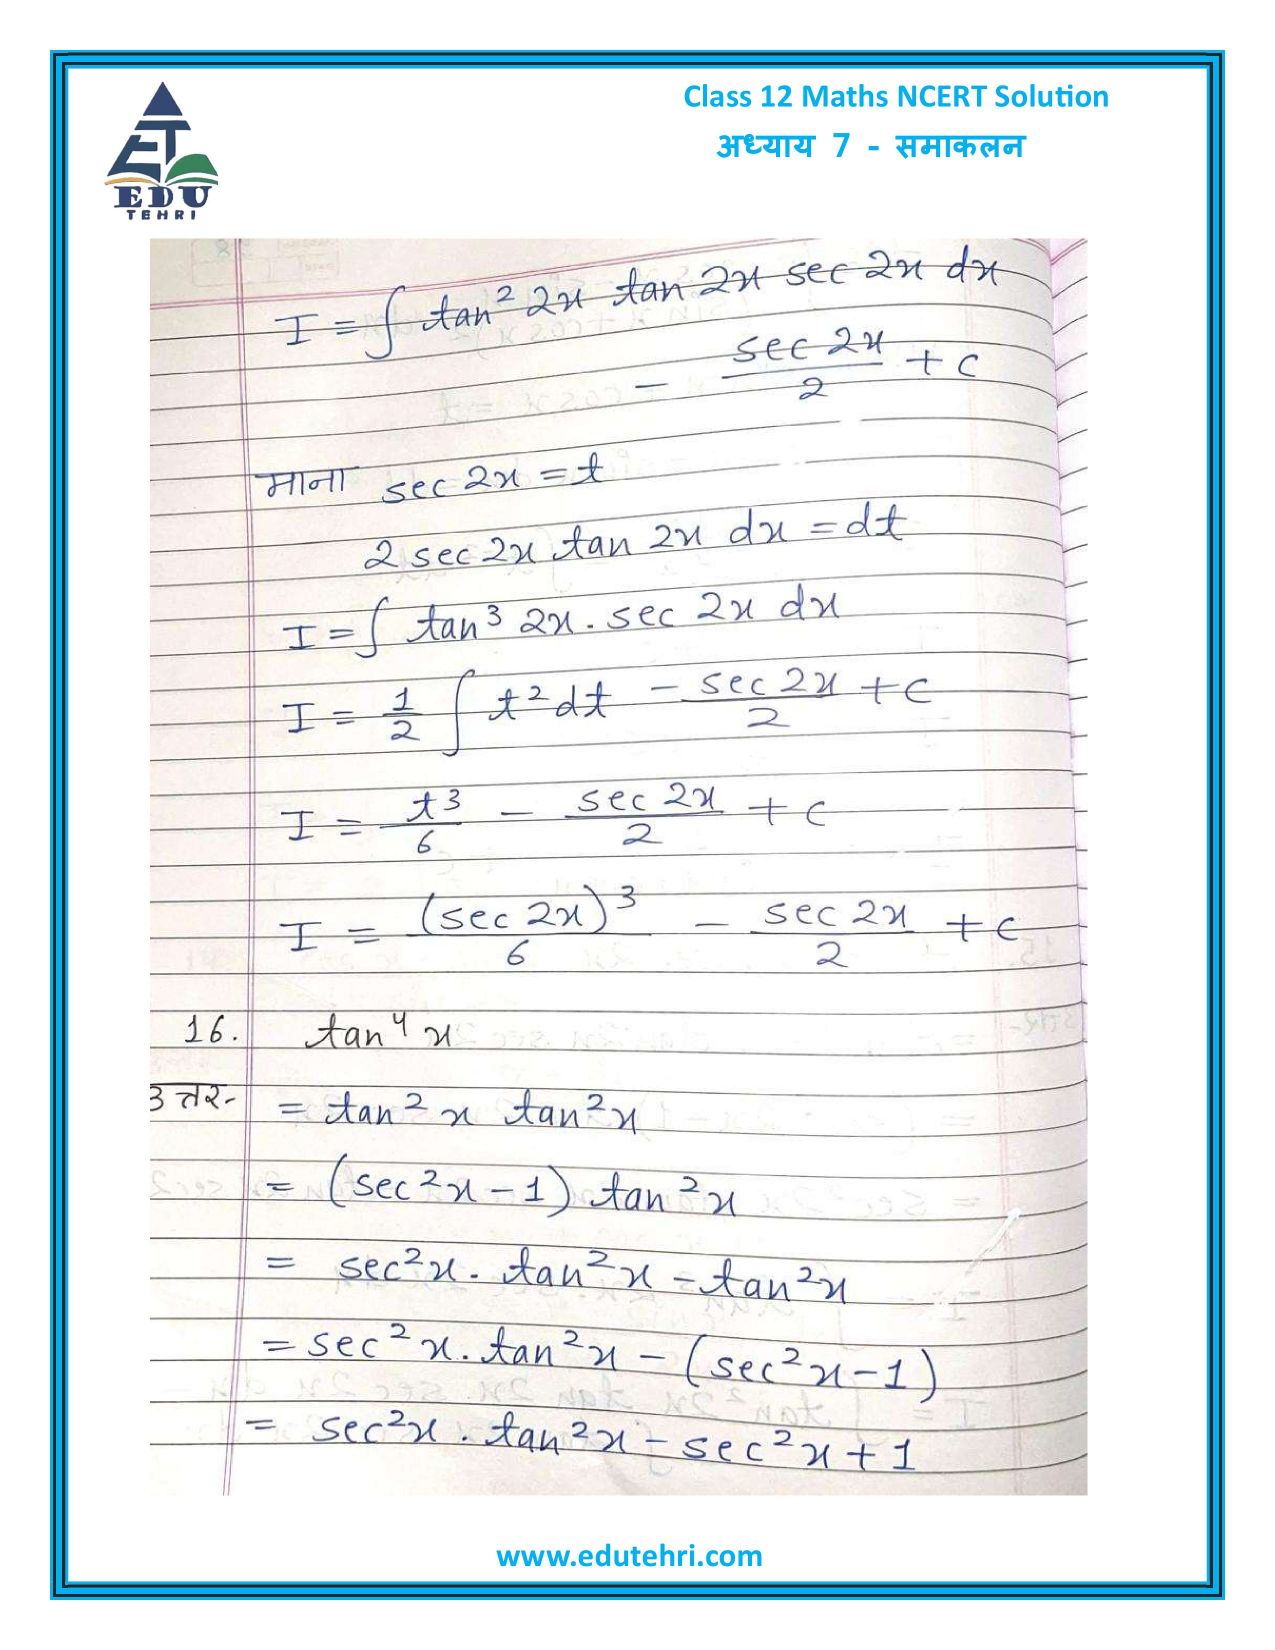 Class 12 Maths NCERT Solution
अध्याय 7 - समाकलन
ET
EDU
TEHRI
I = ∫ tan² 2x tan 2x sec 2x dx
- sec 2x/2 + c
माना sec 2x = t
2 sec 2x tan 2x dx = dt
I = ∫ tan³ 2x . sec 2x dx
I = 1/2 ∫ t² dt - sec 2x/2 + c
I = t³/6 - sec 2x/2 + c
I = (sec 2x)³/6 - sec 2x/2 + c
16. tan⁴ x
उत्तर- = tan² x tan² x
= (sec² x - 1) tan² x
= sec² x . tan² x - tan² x
= sec² x . tan² x - (sec² x - 1)
= sec² x . tan² x - sec² x + 1
www.edutehri.com